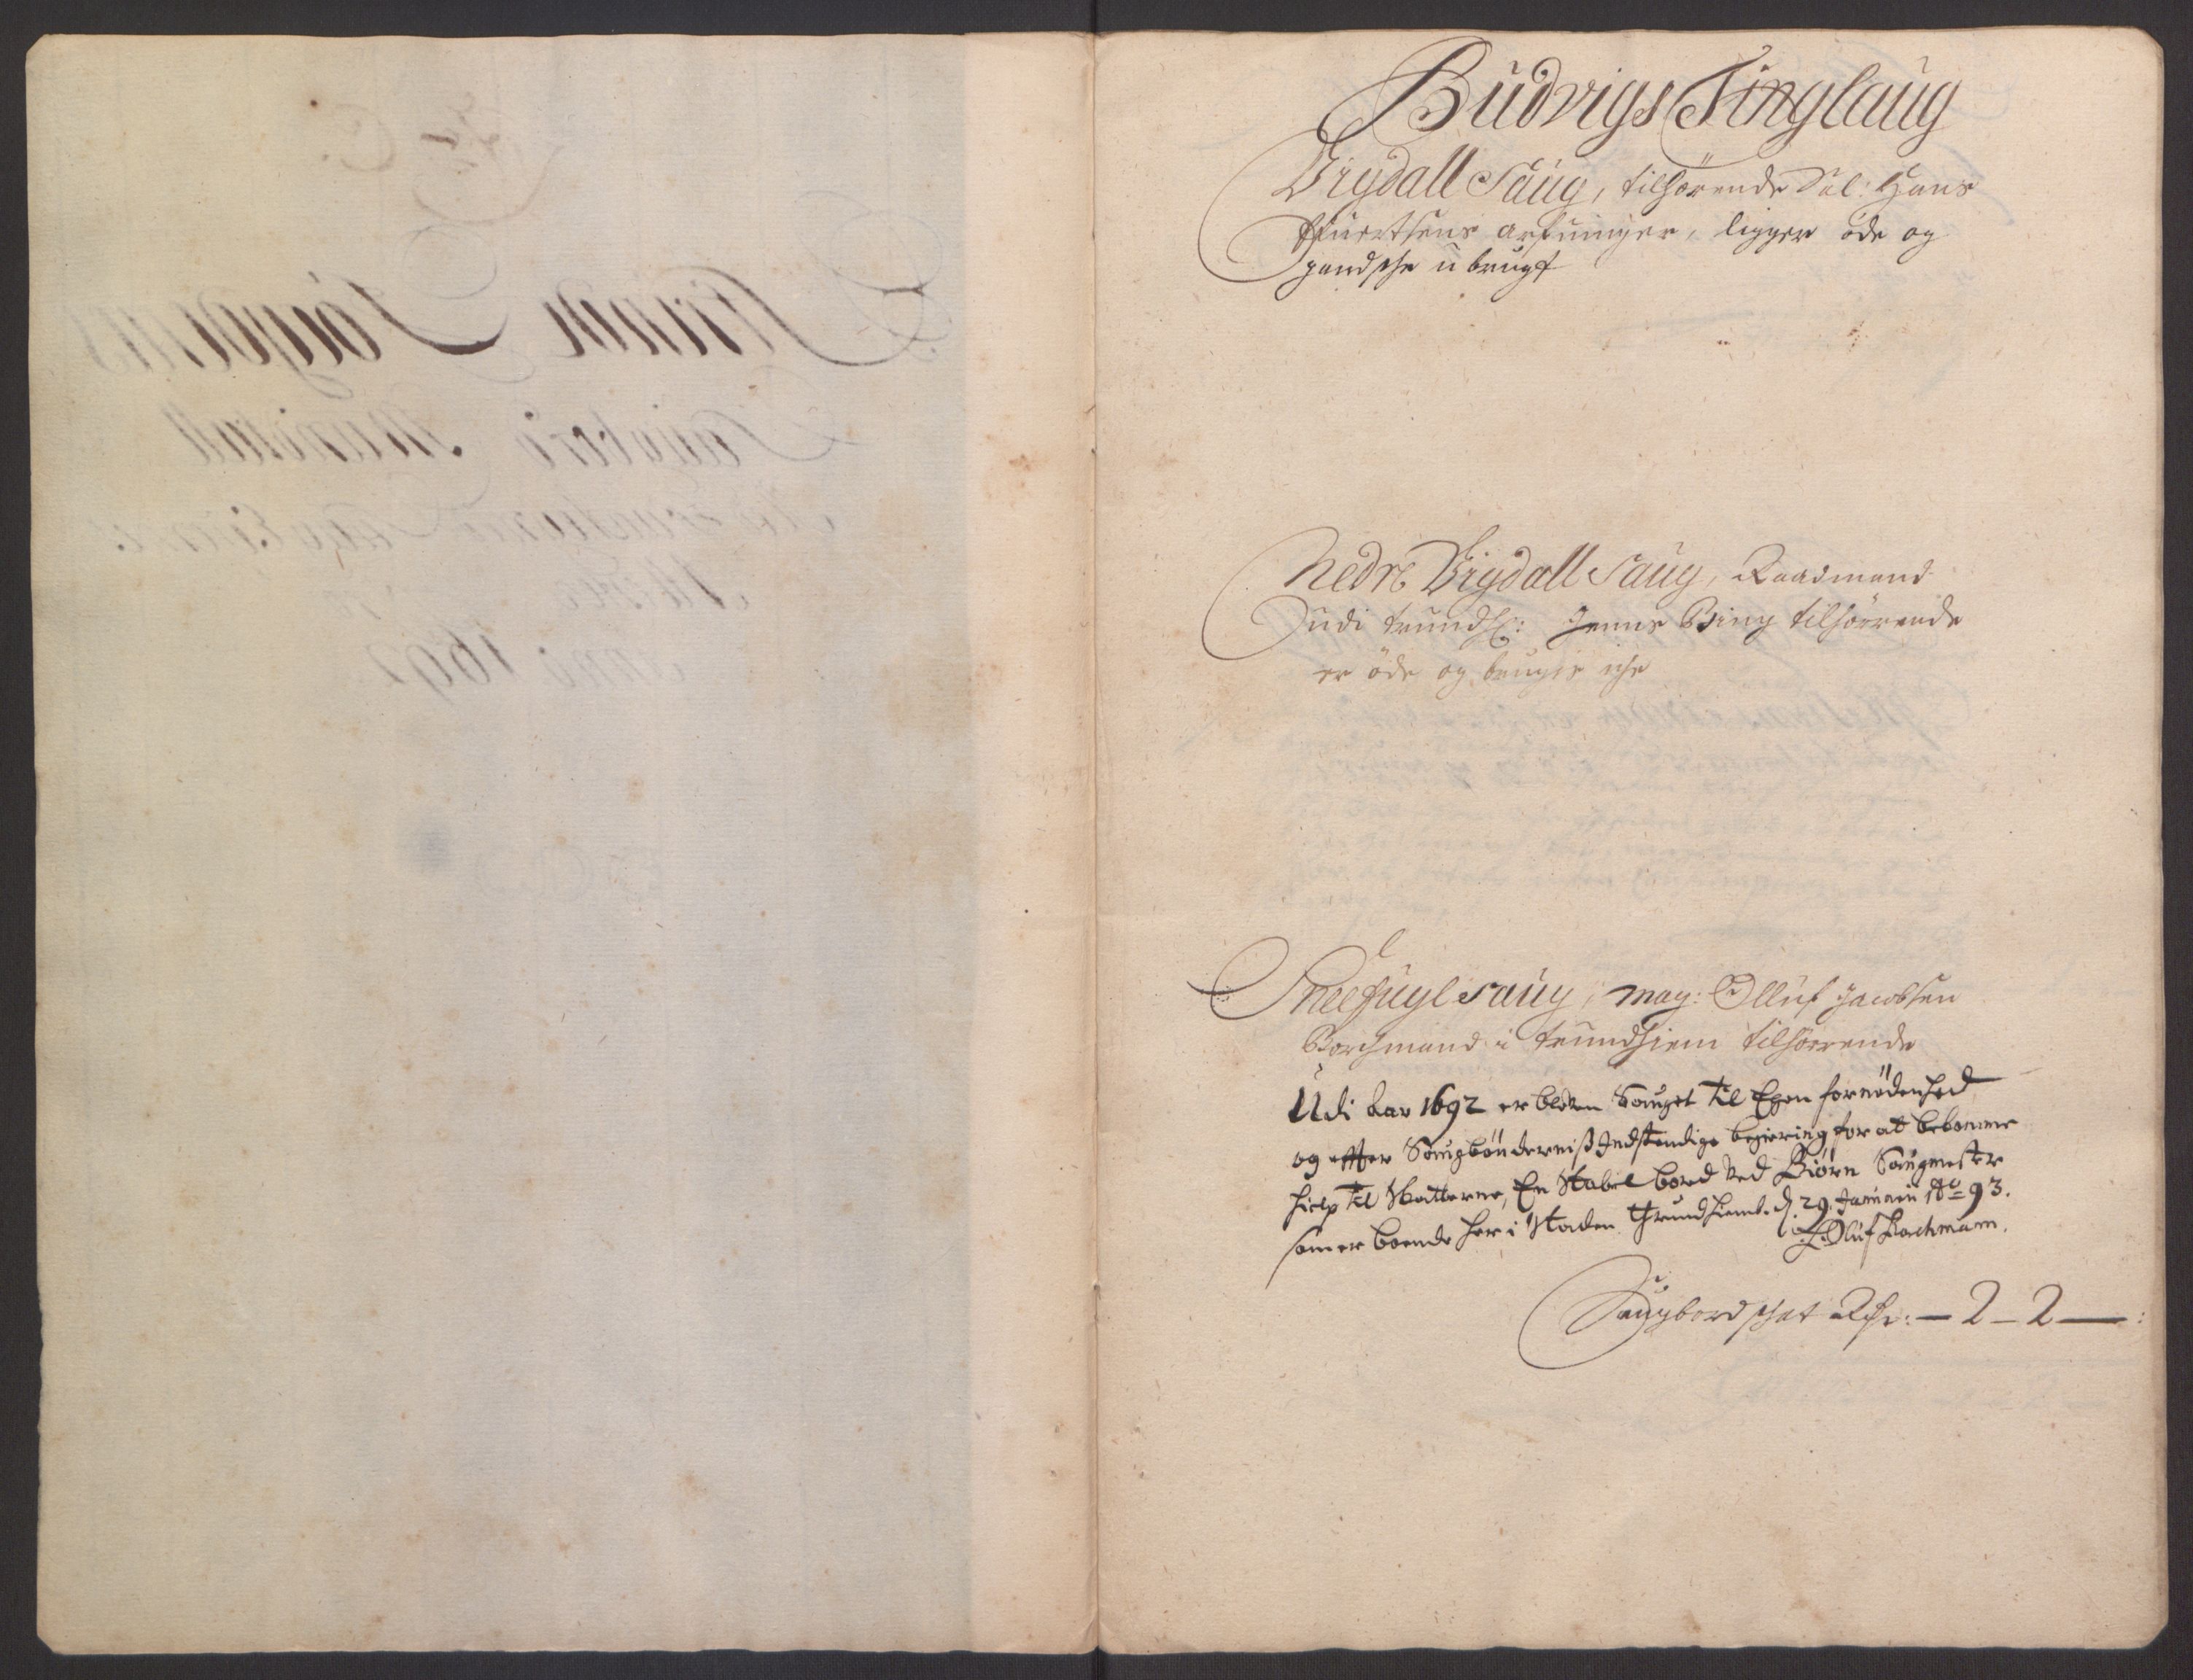 Budvigs Tinglaug
Vigdall Saug, tilhørende Sal: Hans
arfuinger, ligger öde og
gandsche ubrugt
Nedre Vigdall Saug, Raadmand
udi trundh: Jenns Bing tilhörende
er öde og bruges iche
Sneefugl Saug, mag: Olluf Jacobsen
Borchmand i trundhiem tilhörrende
Udi aar 1692 er bleven Sauget til Egen fornødenhed
og efter Saugböndernis Indstendige begiering for at bekomme
hielp til Skatterne, En Stabel bord ved Biörn Saugmester
som er boende her i Staden Thrundhiemb. d. 29. Januarii Ao 93.
Oluf Borchmann.
Saugbordschat Rdr: — 2 — 2 — :